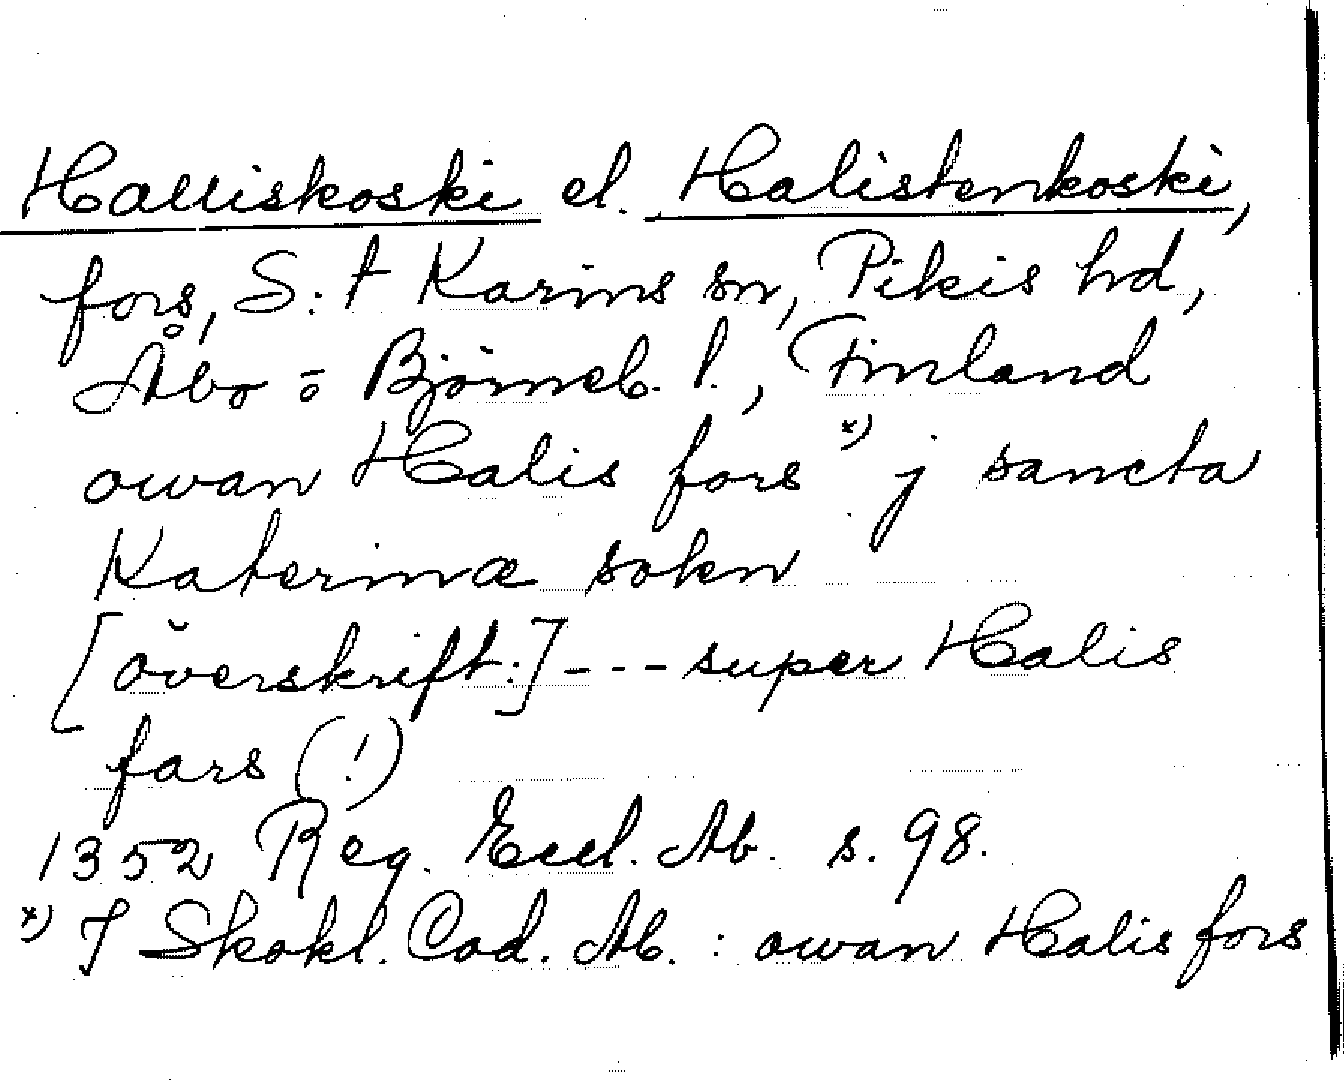 Halliskoski el. Halistenkoski,
fors, S:t Karins sn, Pikis hd,
Åbo = Björneb. l., Finland
owan Halis fors *) j sancta
Katerinæ sokn
[överskift:] --- super Halis
fars (!)
1352 Reg. Eccl. Ab. s. 98.
*) I Skokl. Cod. Ab. : owan Halis fors